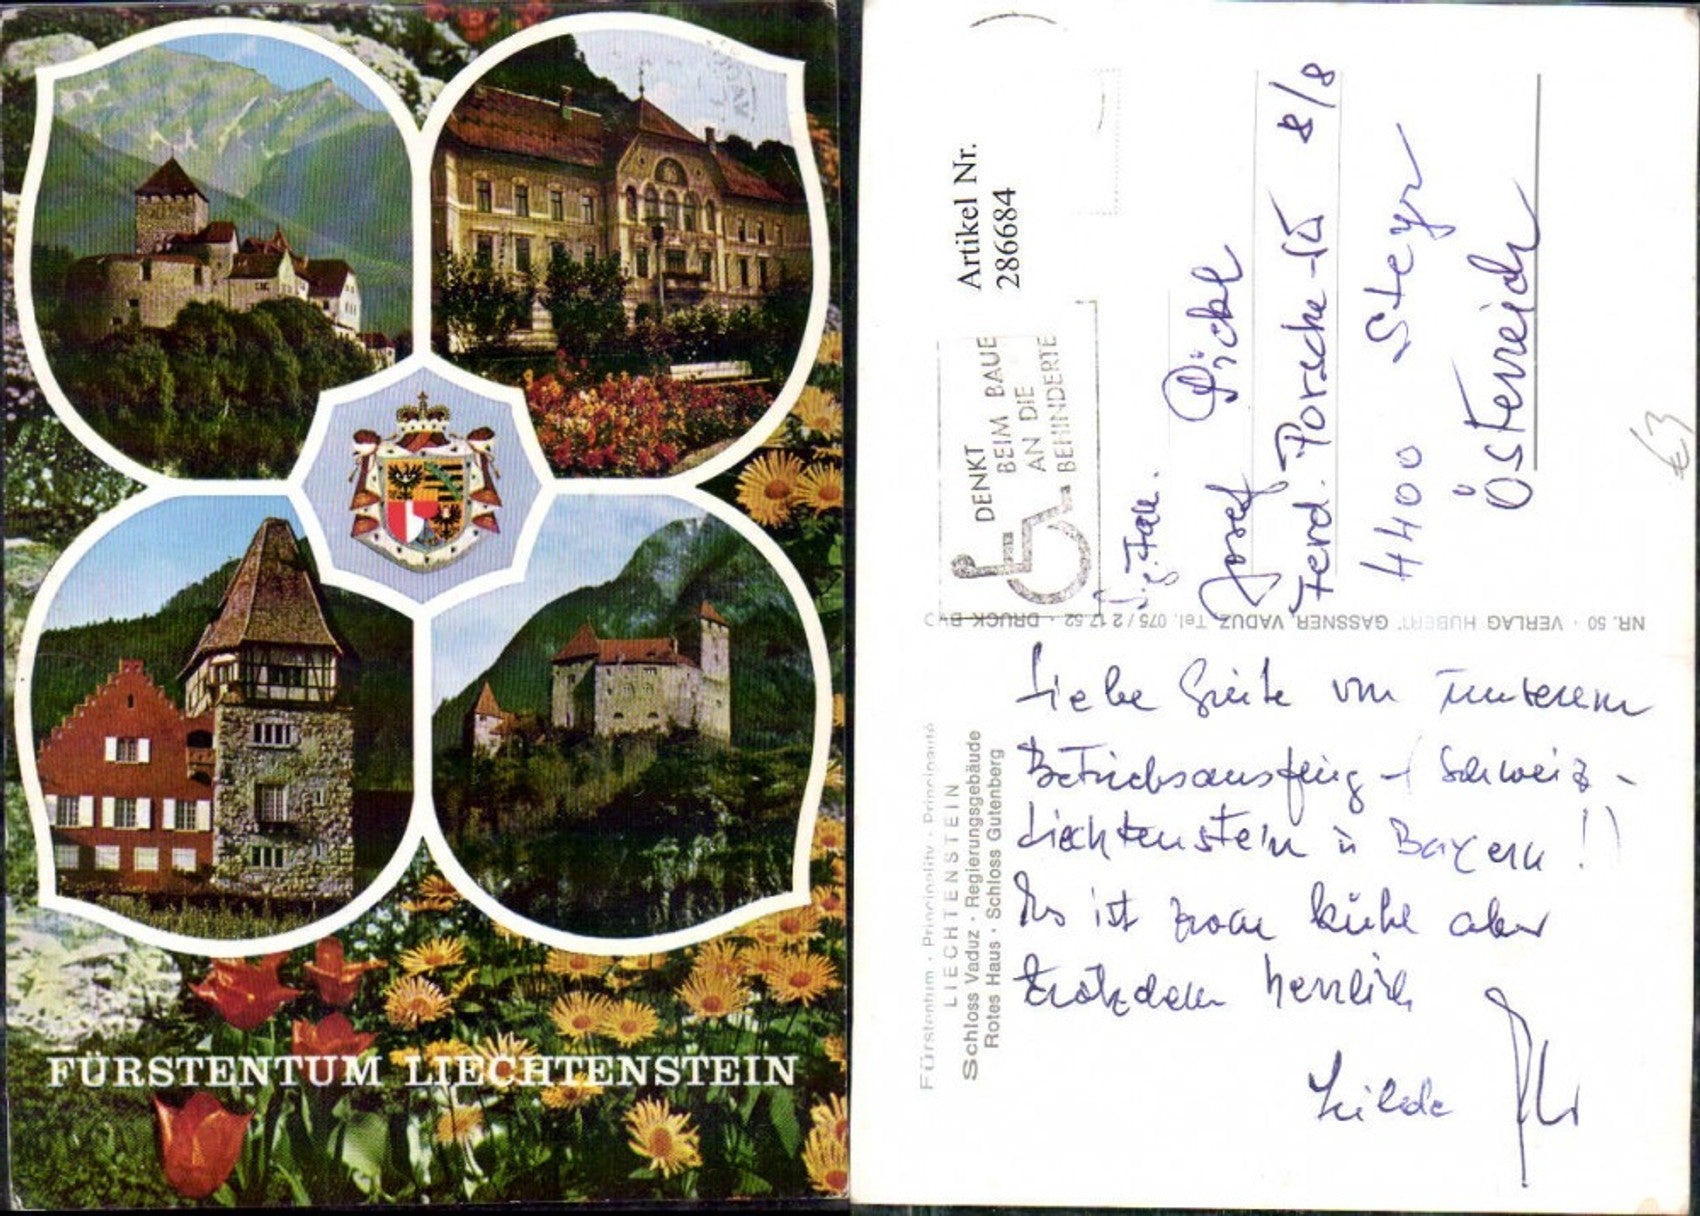 FÜRSTENTUM LIECHTENSTEIN
Artikel Nr.
286684
DENKT
BEIM BAUE
AN DIE
BEHINDERTE
Josef Pickl
Ferd. Porsche-15 8/8
4400 Steyr
Österreich
€3
NR. 50 · VERLAG HUBERT GASSNER, VADUZ, Tel. 075 / 2 17 52 · DRUCK
Fürstentum · Principality · Principauté
LIECHTENSTEIN
Schloss Vaduz · Regierungsgebäude
Rotes Haus · Schloss Gutenberg
Liebe Grüße von unserem
Betriebsausflug - (Schweiz -
Liechtenstein u Bayern!)
Es ist zwar kühl aber
trotzdem herrlich
Hilde